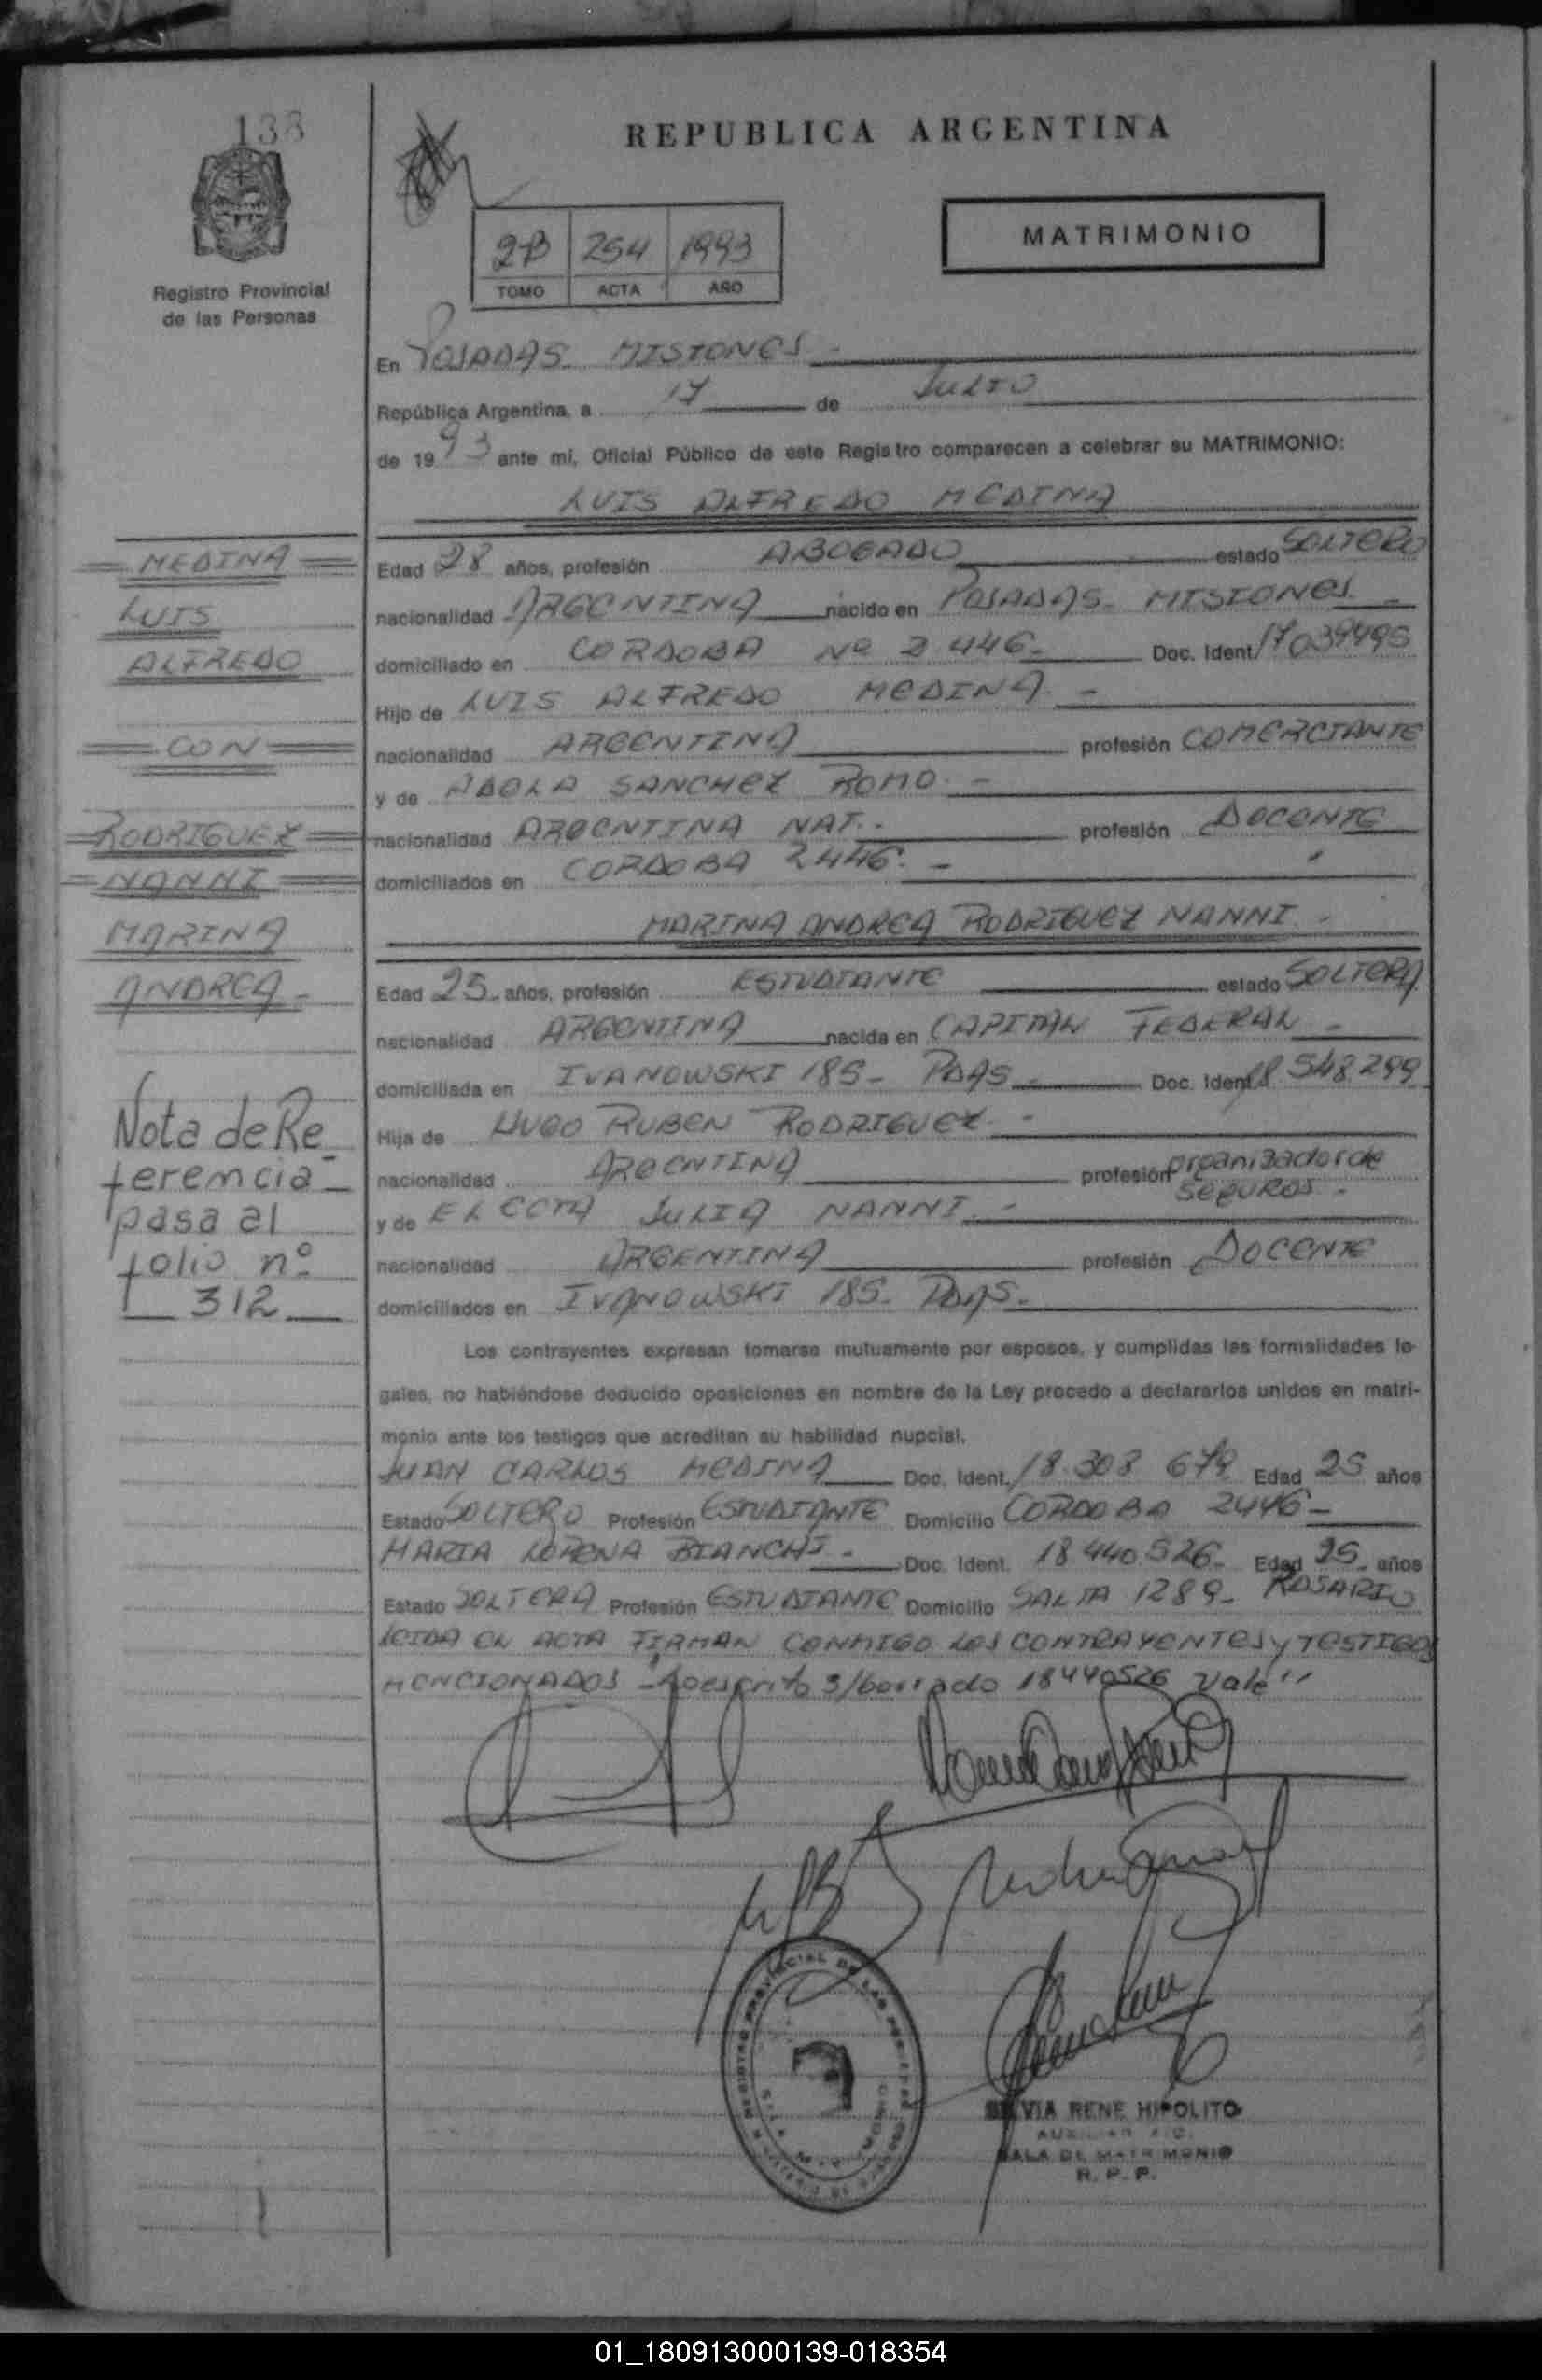 138
REPUBLICA ARGENTINA
2B 254 1993
TOMO ACTA AÑO
MATRIMONIO
Registro Provincial
de las Personas
En POSADAS - MISIONES -
República Argentina, a 17 de JULIO
de 1993 ante mí, Oficial Público de este Registro comparecen a celebrar su MATRIMONIO:
LUIS ALFREDO MEDINA
Edad 28 años, profesión ABOGADO estado SOLTERO
nacionalidad ARGENTINA nacido en POSADAS - MISIONES -
domiciliado en CORDOBA Nº 2446 - Doc. Ident. 17039495
Hijo de LUIS ALFREDO MEDINA -
nacionalidad ARGENTINA profesión COMERCIANTE
y de ADELA SANCHEZ ROMO -
nacionalidad ARGENTINA NAT. - profesión DOCENTE
domiciliados en CORDOBA 2446 -
MARINA ANDREA RODRIGUEZ NANNI -
Edad 25 - años, profesión ESTUDIANTE estado SOLTERA
nacionalidad ARGENTINA nacida en CAPITAL FEDERAL -
domiciliada en IVANOWSKI 185 - PDAS - Doc. Ident. 18 548.299
Hija de HUGO RUBEN RODRIGUEZ -
nacionalidad ARGENTINA profesión organizador de
SEGUROS -
y de ELECTA JULIA NANNI -
nacionalidad ARGENTINA profesión DOCENTE
domiciliados en IVANOWSKI 185 - PDAS -
Los contrayentes expresan tomarse mutuamente por esposos, y cumplidas las formalidades le-
gales, no habiéndose deducido oposiciones en nombre de la Ley procedo a declararlos unidos en matri-
monio ante los testigos que acreditan su habilidad nupcial.
JUAN CARLOS MEDINA Doc. Ident. 18.303 679 Edad 25 años
Estado SOLTERO Profesión ESTUDIANTE Domicilio CORDOBA 2446 -
MARIA LORENA BIANCHI - Doc. Ident. 18 440.526 - Edad 25 - años
Estado SOLTERA Profesión ESTUDIANTE Domicilio SALTA 1289 - ROSARIO
LEIDA EL ACTA FIRMAN CONMIGO LOS CONTRAYENTES y TESTIGOS
MENCIONADOS - Lo escrito s/borrado 18440526 Vale"
MEDINA
LUIS
ALFREDO
CON
RODRIGUEZ
NANNI
MARINA
ANDREA -
Nota de Re
ferencia
pasa al
folio nº
312
SILVIA RENE HIPOLITO
AUXILIAR
SALA DE MATRIMONIO
R. P. P.
01_180913000139-018354